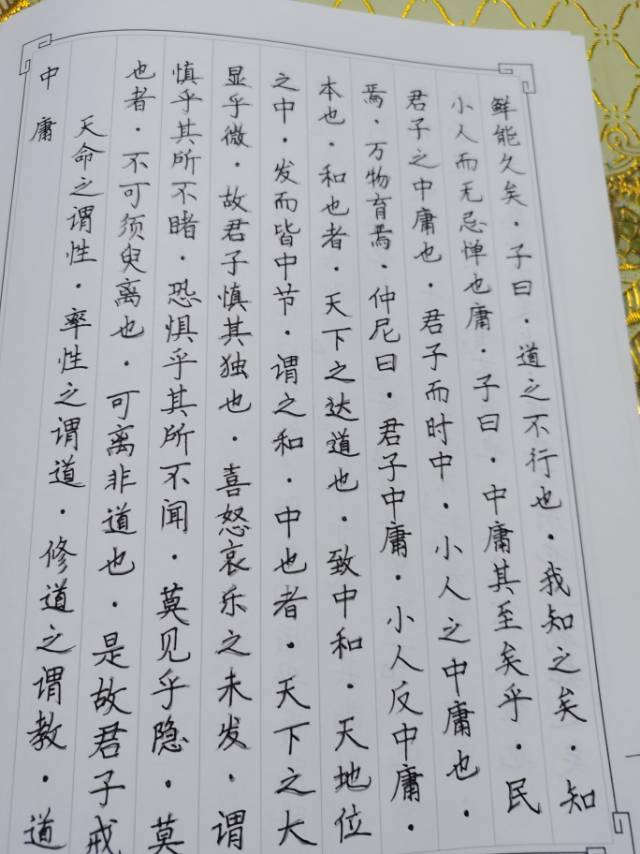 中庸
天命之谓性·率性之谓道·修道之谓教·道
也者·不可须臾离也·可离非道也·是故君子戒
慎乎其所不睹·恐惧乎其所不闻·莫见乎隐·莫
显乎微·故君子慎其独也·喜怒哀乐之未发·谓
之中·发而皆中节·谓之和·中也者·天下之大
本也·和也者·天下之达道也·致中和·天地位
焉·万物育焉·仲尼曰·君子中庸·小人反中庸·
君子之中庸也·君子而时中·小人之中庸也·
小人而无忌惮也庸·子曰·中庸其至矣乎·民
鲜能久矣·子曰·道之不行也·我知之矣·知